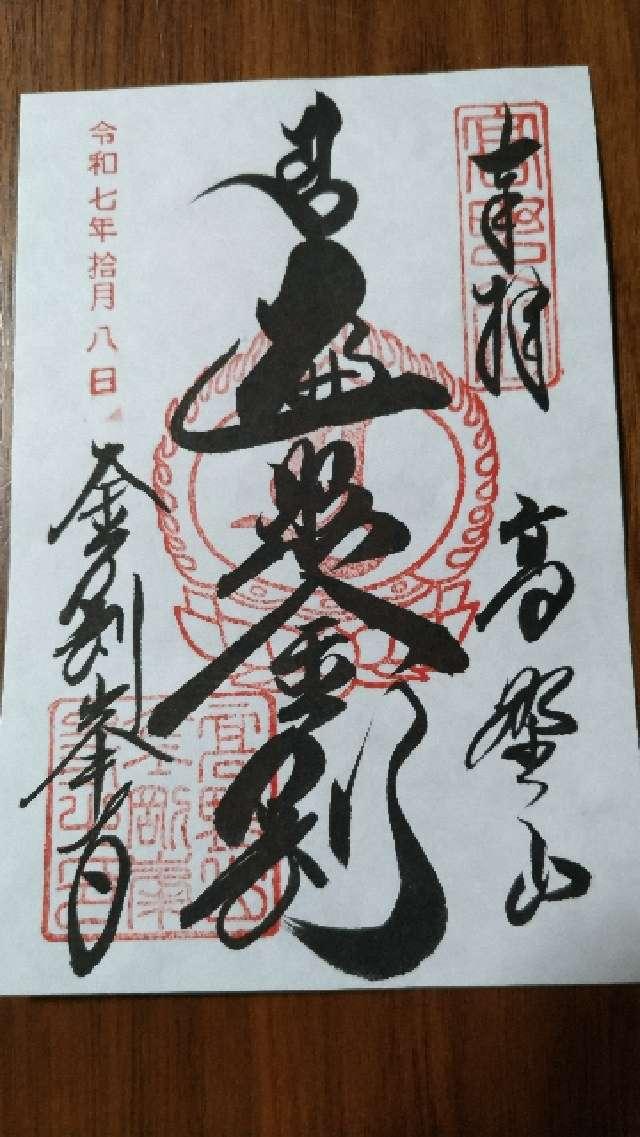 奉拝
高野山
遍照金剛
令和七年拾月八日
金剛峯寺